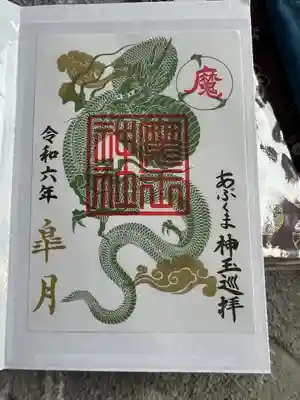 魔
あぶくま神玉巡拝
靈山
神社
令和六年
皐月